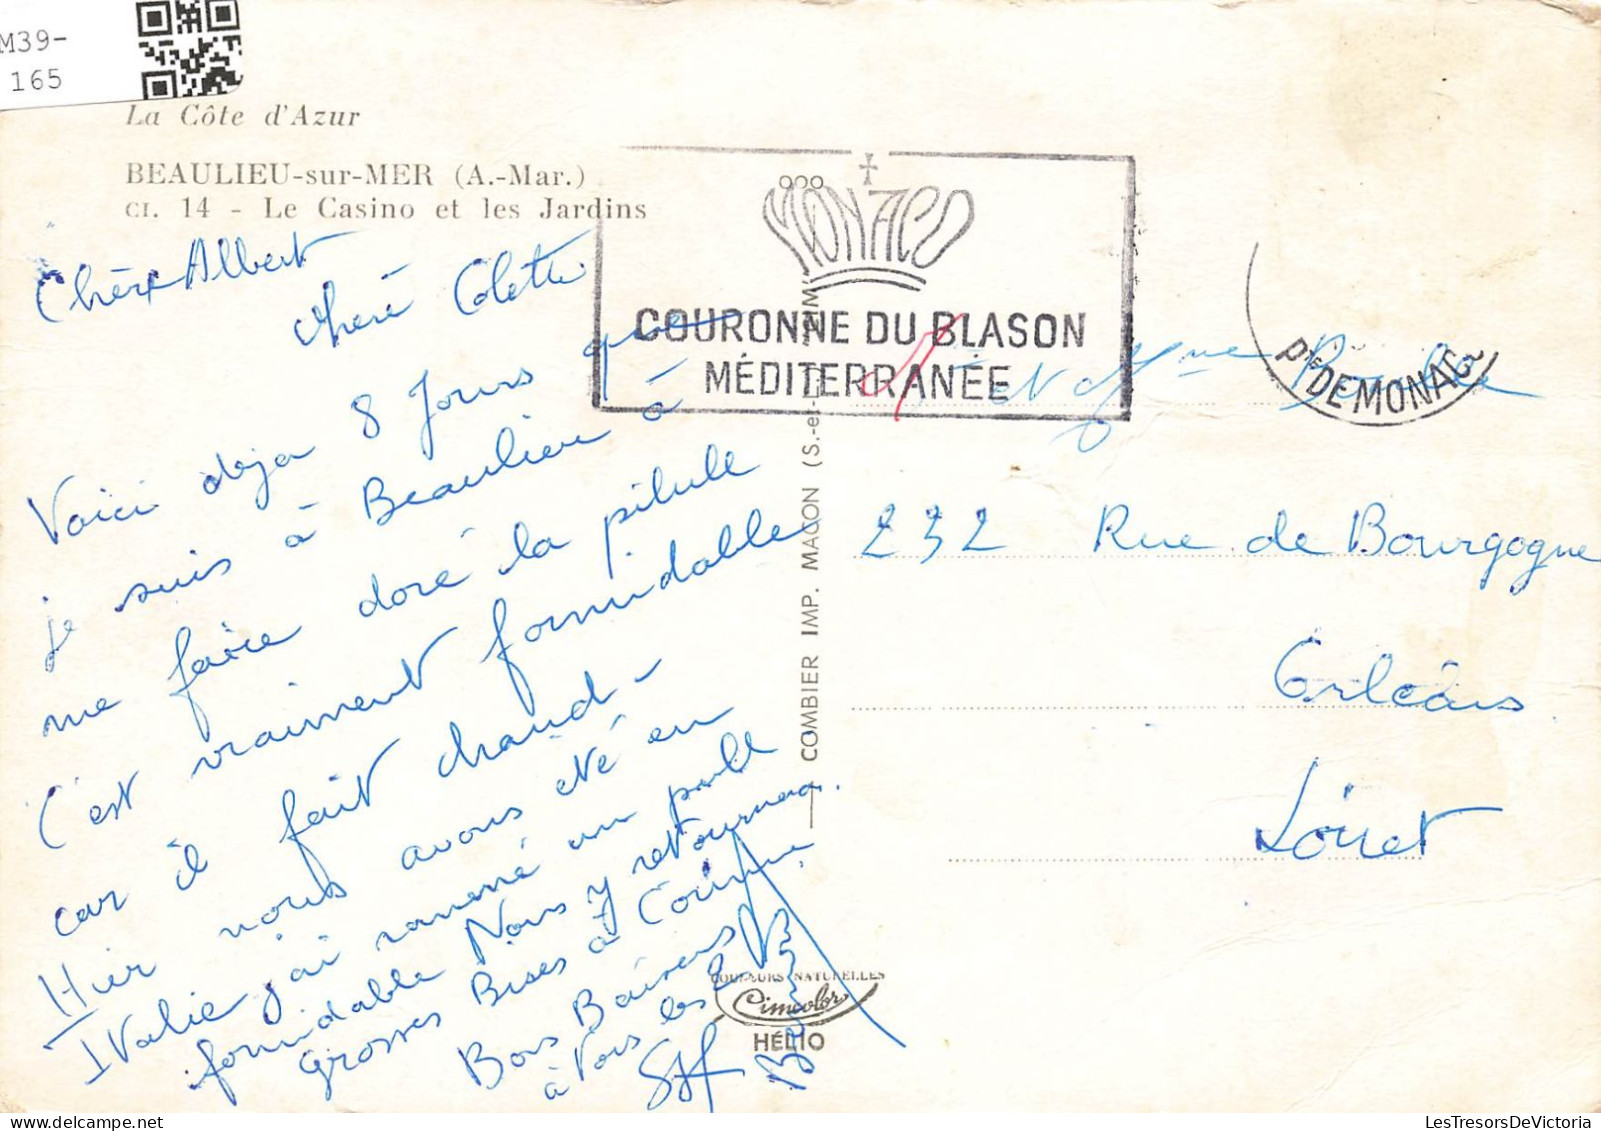 M39-
165
La Côte d'Azur
BEAULIEU-sur-MER (A.-Mar.)
CI. 14 - Le Casino et les Jardins
MONACO
COURONNE DU BLASON
MÉDITERRANÉE
Pté DE MONACO
Chère Albert
chere Colette
Voici deja 8 Jours que
je suis à Beaulieu à
me faire doré la pilule
C'est vraiment formidable
car il fait chaud -
Hier nous avons été en
Italie j'ai ramené un pull
formidable Nous y retournerons.
Grosses Bises à Corinne
Bons Baisers
à vous les 2
COMBIER IMP. MACON (S.-et-L.)
COULEURS NATURELLES
Cimcolor
HÉLIO
et Mme
232 Rue de Bourgogne
Orléans
Loiret
LesTresorsDeVictoria